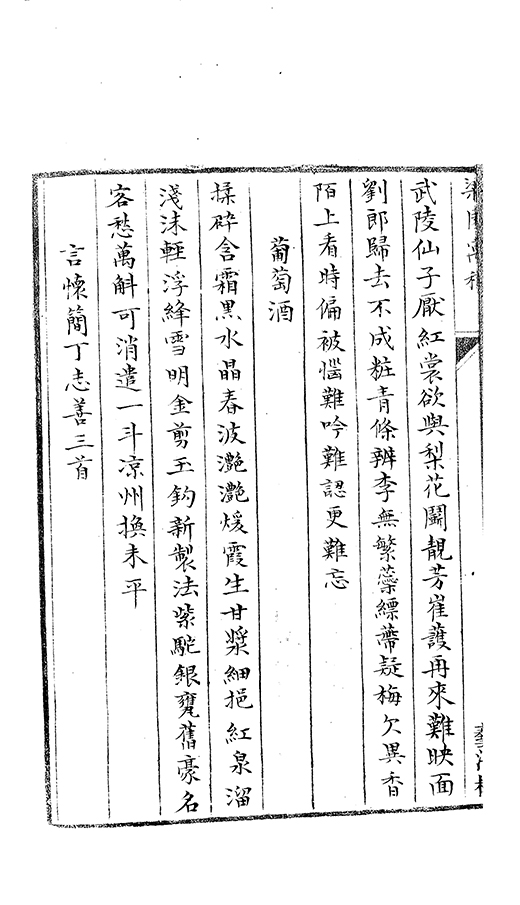 武陵仙子厭紅裳欲與梨花鬭靚芳崔護再來難映面
劉郎歸去不成粧青條辨李無繁蘂縹蔕疑梅欠異香
陌上看時偏被惱難吟難認更難忘
葡萄酒
揉碎含霜黑水晶春波灧灧煖霞生甘漿細挹紅泉溜
淺沫輕浮絳雪明金剪玉鈎新製法紫駝銀甕舊豪名
客愁萬斛可消遣一斗凉州換未平
言懷簡丁志善三首